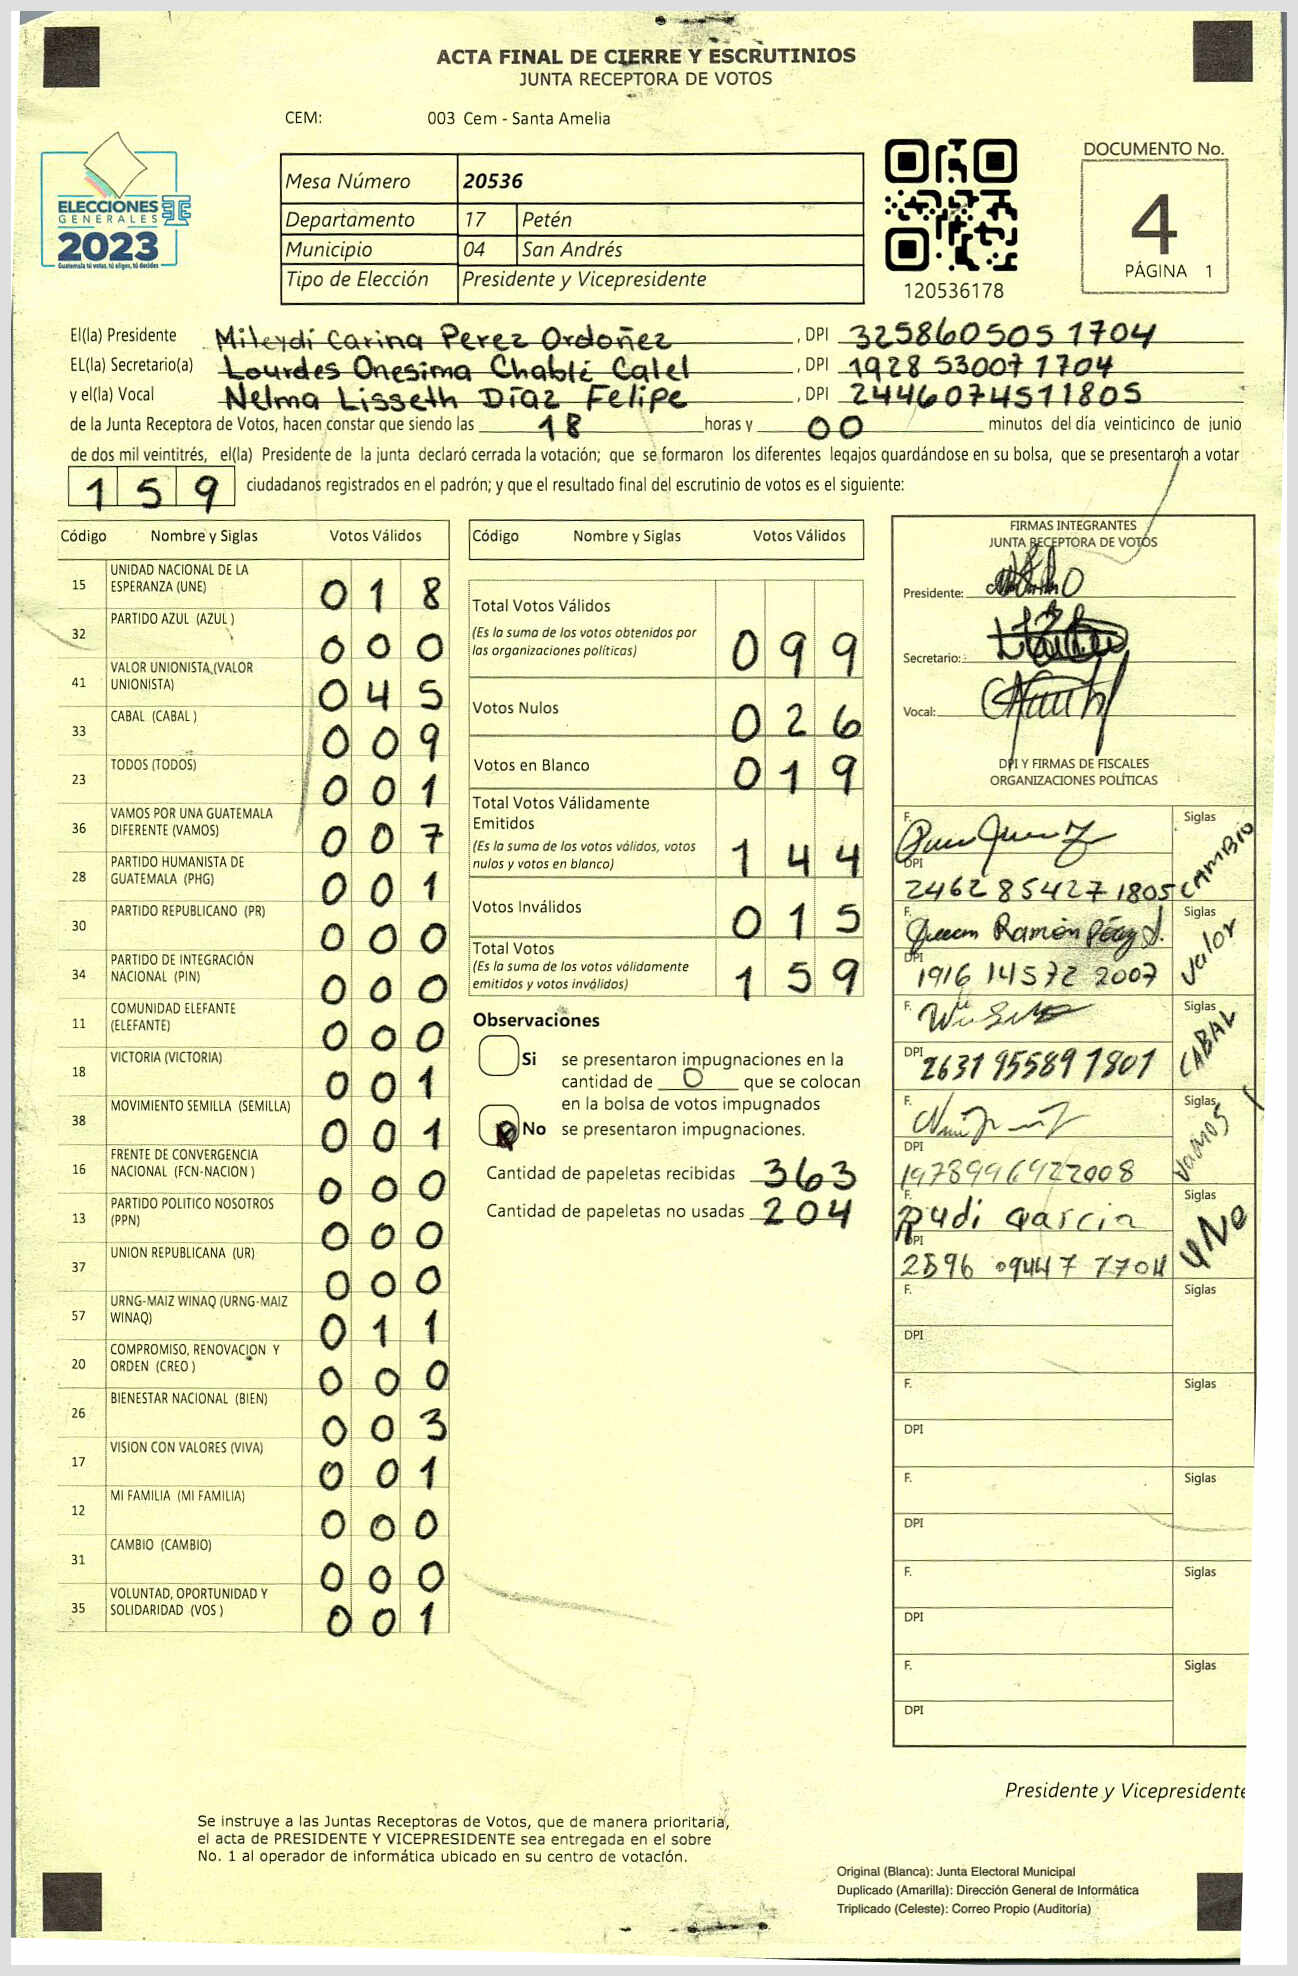 ACTA FINAL DE CIERRE Y ESCRUTINIOS
JUNTA RECEPTORA DE VOTOS
CEM: 003 Cem - Santa Amelia
ELECCIONES
GENERALES
2023
Guatemala tú votas, tú eliges, tú decides
Mesa Número 20536
Departamento 17 Petén
Municipio 04 San Andrés
Tipo de Elección Presidente y Vicepresidente
120536178
DOCUMENTO No.
4
PÁGINA 1
El(la) Presidente Mileydi Carina Perez Ordoñez, DPI 3258605051704
EL(la) Secretario(a) Lourdes Onesima Chablé Calel, DPI 1928 53007 1704
y el(la) Vocal Nelma Lisseth Díaz Felipe, DPI 2446074511805
de la Junta Receptora de Votos, hacen constar que siendo las 18 horas y 00 minutos del día veinticinco de junio
de dos mil veintitrés, el(la) Presidente de la junta declaró cerrada la votación; que se formaron los diferentes legajos guardándose en su bolsa, que se presentaron a votar
159 ciudadanos registrados en el padrón; y que el resultado final del escrutinio de votos es el siguiente:
Código Nombre y Siglas Votos Válidos
15 UNIDAD NACIONAL DE LA ESPERANZA (UNE) 018
32 PARTIDO AZUL (AZUL ) 000
41 VALOR UNIONISTA,(VALOR UNIONISTA) 045
33 CABAL (CABAL ) 009
23 TODOS (TODOS) 001
36 VAMOS POR UNA GUATEMALA DIFERENTE (VAMOS) 007
28 PARTIDO HUMANISTA DE GUATEMALA (PHG) 001
30 PARTIDO REPUBLICANO (PR) 000
34 PARTIDO DE INTEGRACIÓN NACIONAL (PIN) 000
11 COMUNIDAD ELEFANTE (ELEFANTE) 000
18 VICTORIA (VICTORIA) 001
38 MOVIMIENTO SEMILLA (SEMILLA) 001
16 FRENTE DE CONVERGENCIA NACIONAL (FCN-NACION ) 000
13 PARTIDO POLITICO NOSOTROS (PPN) 000
37 UNION REPUBLICANA (UR) 000
57 URNG-MAIZ WINAQ (URNG-MAIZ WINAQ) 011
20 COMPROMISO, RENOVACION Y ORDEN (CREO ) 000
26 BIENESTAR NACIONAL (BIEN) 003
17 VISION CON VALORES (VIVA) 001
12 MI FAMILIA (MI FAMILIA) 000
31 CAMBIO (CAMBIO) 000
35 VOLUNTAD, OPORTUNIDAD Y SOLIDARIDAD (VOS ) 001
Código Nombre y Siglas Votos Válidos
Total Votos Válidos
(Es la suma de los votos obtenidos por
las organizaciones políticas) 099
Votos Nulos 026
Votos en Blanco 019
Total Votos Válidamente
Emitidos
(Es la suma de los votos válidos, votos
nulos y votos en blanco) 144
Votos Inválidos 015
Total Votos
(Es la suma de los votos válidamente
emitidos y votos inválidos) 159
Observaciones
Si se presentaron impugnaciones en la
cantidad de 0 que se colocan
en la bolsa de votos impugnados
No se presentaron impugnaciones.
Cantidad de papeletas recibidas 363
Cantidad de papeletas no usadas 204
FIRMAS INTEGRANTES
JUNTA RECEPTORA DE VOTOS
Presidente:
Secretario:
Vocal:
DPI Y FIRMAS DE FISCALES
ORGANIZACIONES POLÍTICAS
F. Siglas CAMBIO
DPI 2462 85427 1805
F. Juan Ramón Pérez Siglas Valor
DPI 1916 14572 2007
F. Siglas CABAL
DPI 2631 95589 1801
F. Siglas Vamos
DPI 1978996922008
F. Rudi Garcia Siglas UNO
DPI 2596 09447 1704
F. Siglas
DPI
F. Siglas
DPI
F. Siglas
DPI
F. Siglas
DPI
F. Siglas
DPI
Presidente y Vicepresidente
Se instruye a las Juntas Receptoras de Votos, que de manera prioritaria,
el acta de PRESIDENTE Y VICEPRESIDENTE sea entregada en el sobre
No. 1 al operador de informática ubicado en su centro de votación.
Original (Blanca): Junta Electoral Municipal
Duplicado (Amarilla): Dirección General de Informática
Triplicado (Celeste): Correo Propio (Auditoría)